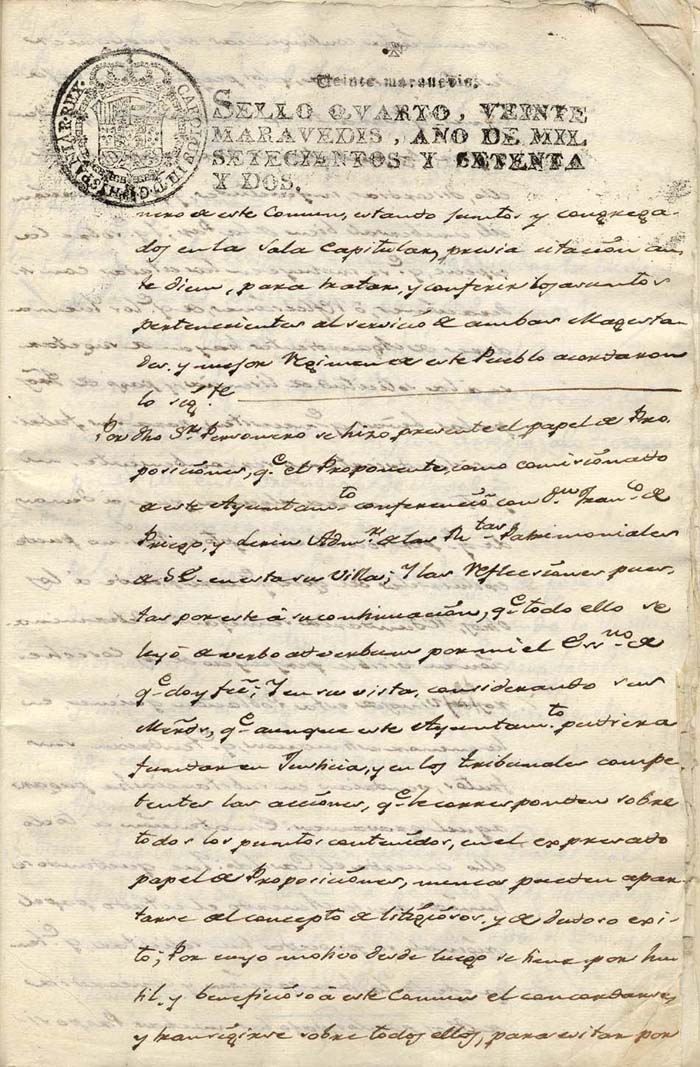 Veinte maravedis.
SELLO QVARTO, VEINTE
MARAVEDIS, AÑO DE MIL
SETECIENTOS Y SETENTA
Y DOS.
CAROLUS III D. G. HISPANIAR. REX.
nero de este Comun, estando juntos y congrega-
dos en la Sala Capitular, previa citacion an-
te diem, para tratar, y conferir los asuntos
pertenecientes al servicio de ambas Magesta-
des, y mejor Regimen de este Pueblo acordaron
lo sig.te
Por dho S.r Personero se hizo presente el papel de Pro-
posiciones, q.e el Proponente, como comisionado
de este Ayuntam.to conferenció con d.n Fran.co de
Priego, y Lerin Adm.r de las R.tas Patrimoniales
de S.E. en esta su Villa; Y las Reflecciones pues-
tas por este á su continuación, q.e todo ello se
leyó de verbo ad verbum por mi el Ess.no de
q.e doy feé; Y en su vista, considerando sus
Mrds, q.e aunque este Ayuntam.to pudiera
fundar en Justicia, y en los tribunales compe-
tentes las acciones, q.e le corresponden sobre
todos los puntos contenidos, en el expresado
papel de Proposiciones, nunca pueden apar-
tarse del concepto de litigiosos, y de dudoso exi-
to; Por cuyo motivo desde luego se tiene por hu-
til, y beneficioso á este Comun el concordarse,
y transigirse sobre todos ellos, para evitar por